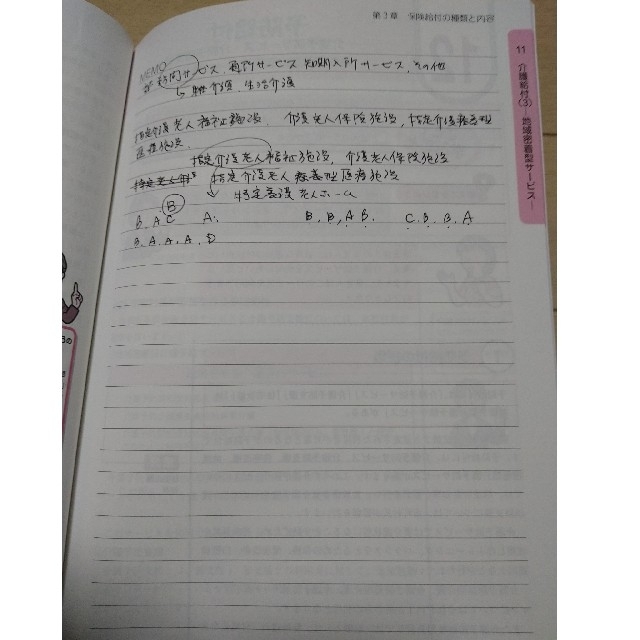 第3章 保険給付の種類と内容
11 介護給付(3)―地域密着型サービス―
MEMO
訪問サービス、通所サービス 短期入所サービス、その他
↳ 身体介護、生活介護
指定介護老人福祉施設、介護老人保険施設、指定介護療養型
医療施設、
指定介護老人福祉施設、介護老人保険施設
指定介護老人療養型医療施設
特定養護老人ホーム
B
B. A C A. B, B, A B. C. B. B. A
B. A. A. A. D